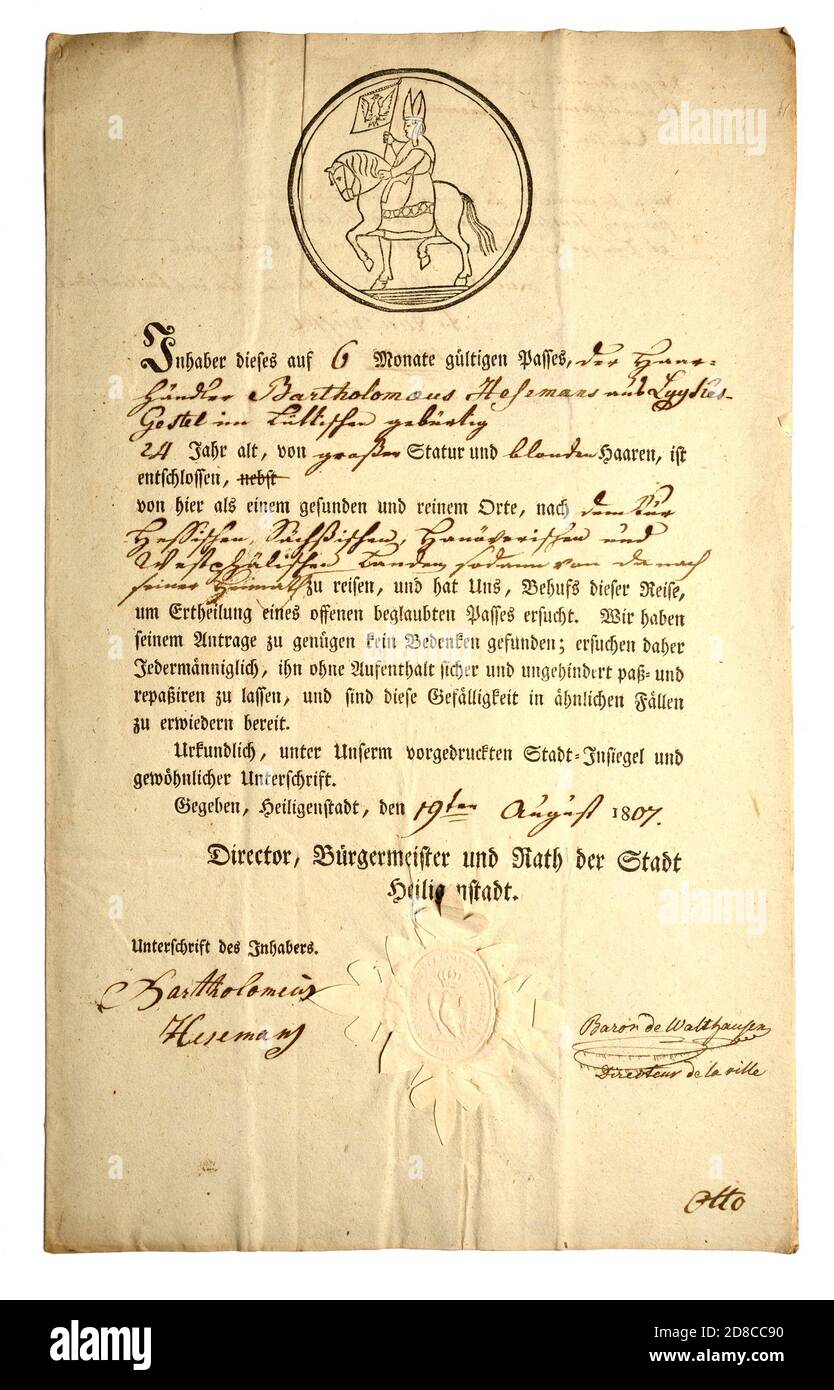 Inhaber dieses auf 6 Monate gültigen Passes, der Haar-
händler Bartholomæus Hesemans aus
Gestel im Lüttischen gebürtig
24 Jahr alt, von großer Statur und blonden Haaren, ist
entschlossen, nebst
von hier als einem gesunden und reinem Orte, nach dem Kur
Hessischen, Sächßischen, Hanöverischen und
Westphälischen Landen, sodann von da nach
seiner Heimath zu reisen, und hat Uns, Behufs dieser Reise,
um Ertheilung eines offenen beglaubten Passes ersucht. Wir haben
seinem Antrage zu genügen kein Bedenken gefunden; ersuchen daher
Jedermänniglich, ihn ohne Aufenthalt sicher und ungehindert paß- und
repaßiren zu lassen, und sind diese Gefälligkeit in ähnlichen Fällen
zu erwiedern bereit.
Urkundlich, unter Unserm vorgedruckten Stadt-Insiegel und
gewöhnlicher Unterschrift.
Gegeben, Heiligenstadt, den 19ten August 1807.
Director, Bürgermeister und Rath der Stadt
Heiligenstadt.
Unterschrift des Inhabers.
Bartholomeus
Hesemans
Baron de Walthausen
Directeur de la ville
Otto
a
alamy
alamy
Image ID: 2D8CC90
www.alamy.com